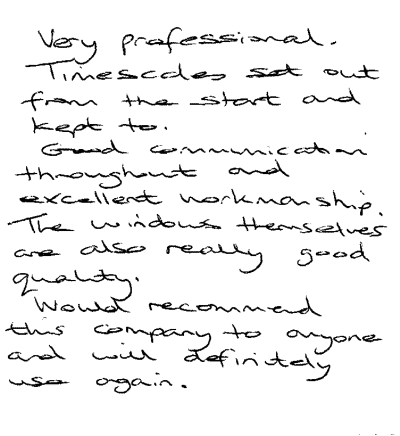 Very professional.
Timescales set out
from the start and
kept to.
Good communication
throughout and
excellent workmanship.
The windows themselves
are also really good
quality.
Would recommend
this company to anyone
and will definitely
use again.